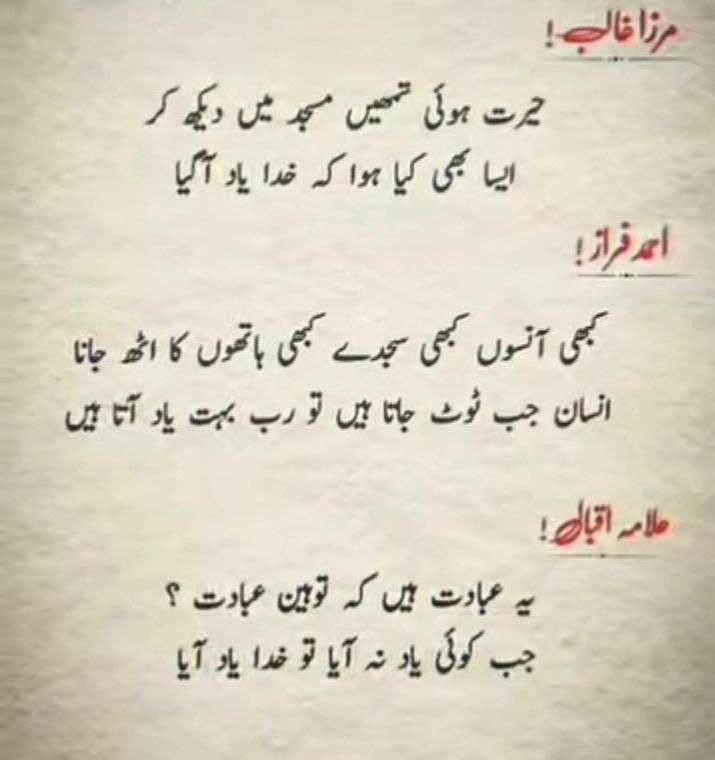 مرزا غالب!
حیرت ہوئی تمھیں مسجد میں دیکھ کر
ایسا بھی کیا ہوا کہ خدا یاد آگیا
احمد فراز!
کبھی آنسوں کبھی سجدے کبھی ہاتھوں کا اٹھ جانا
انسان جب ٹوٹ جاتا ہیں تو رب بہت یاد آتا ہیں
علامہ اقبال!
یہ عبادت ہیں کہ توہین عبادت ؟
جب کوئی یاد نہ آیا تو خدا یاد آیا